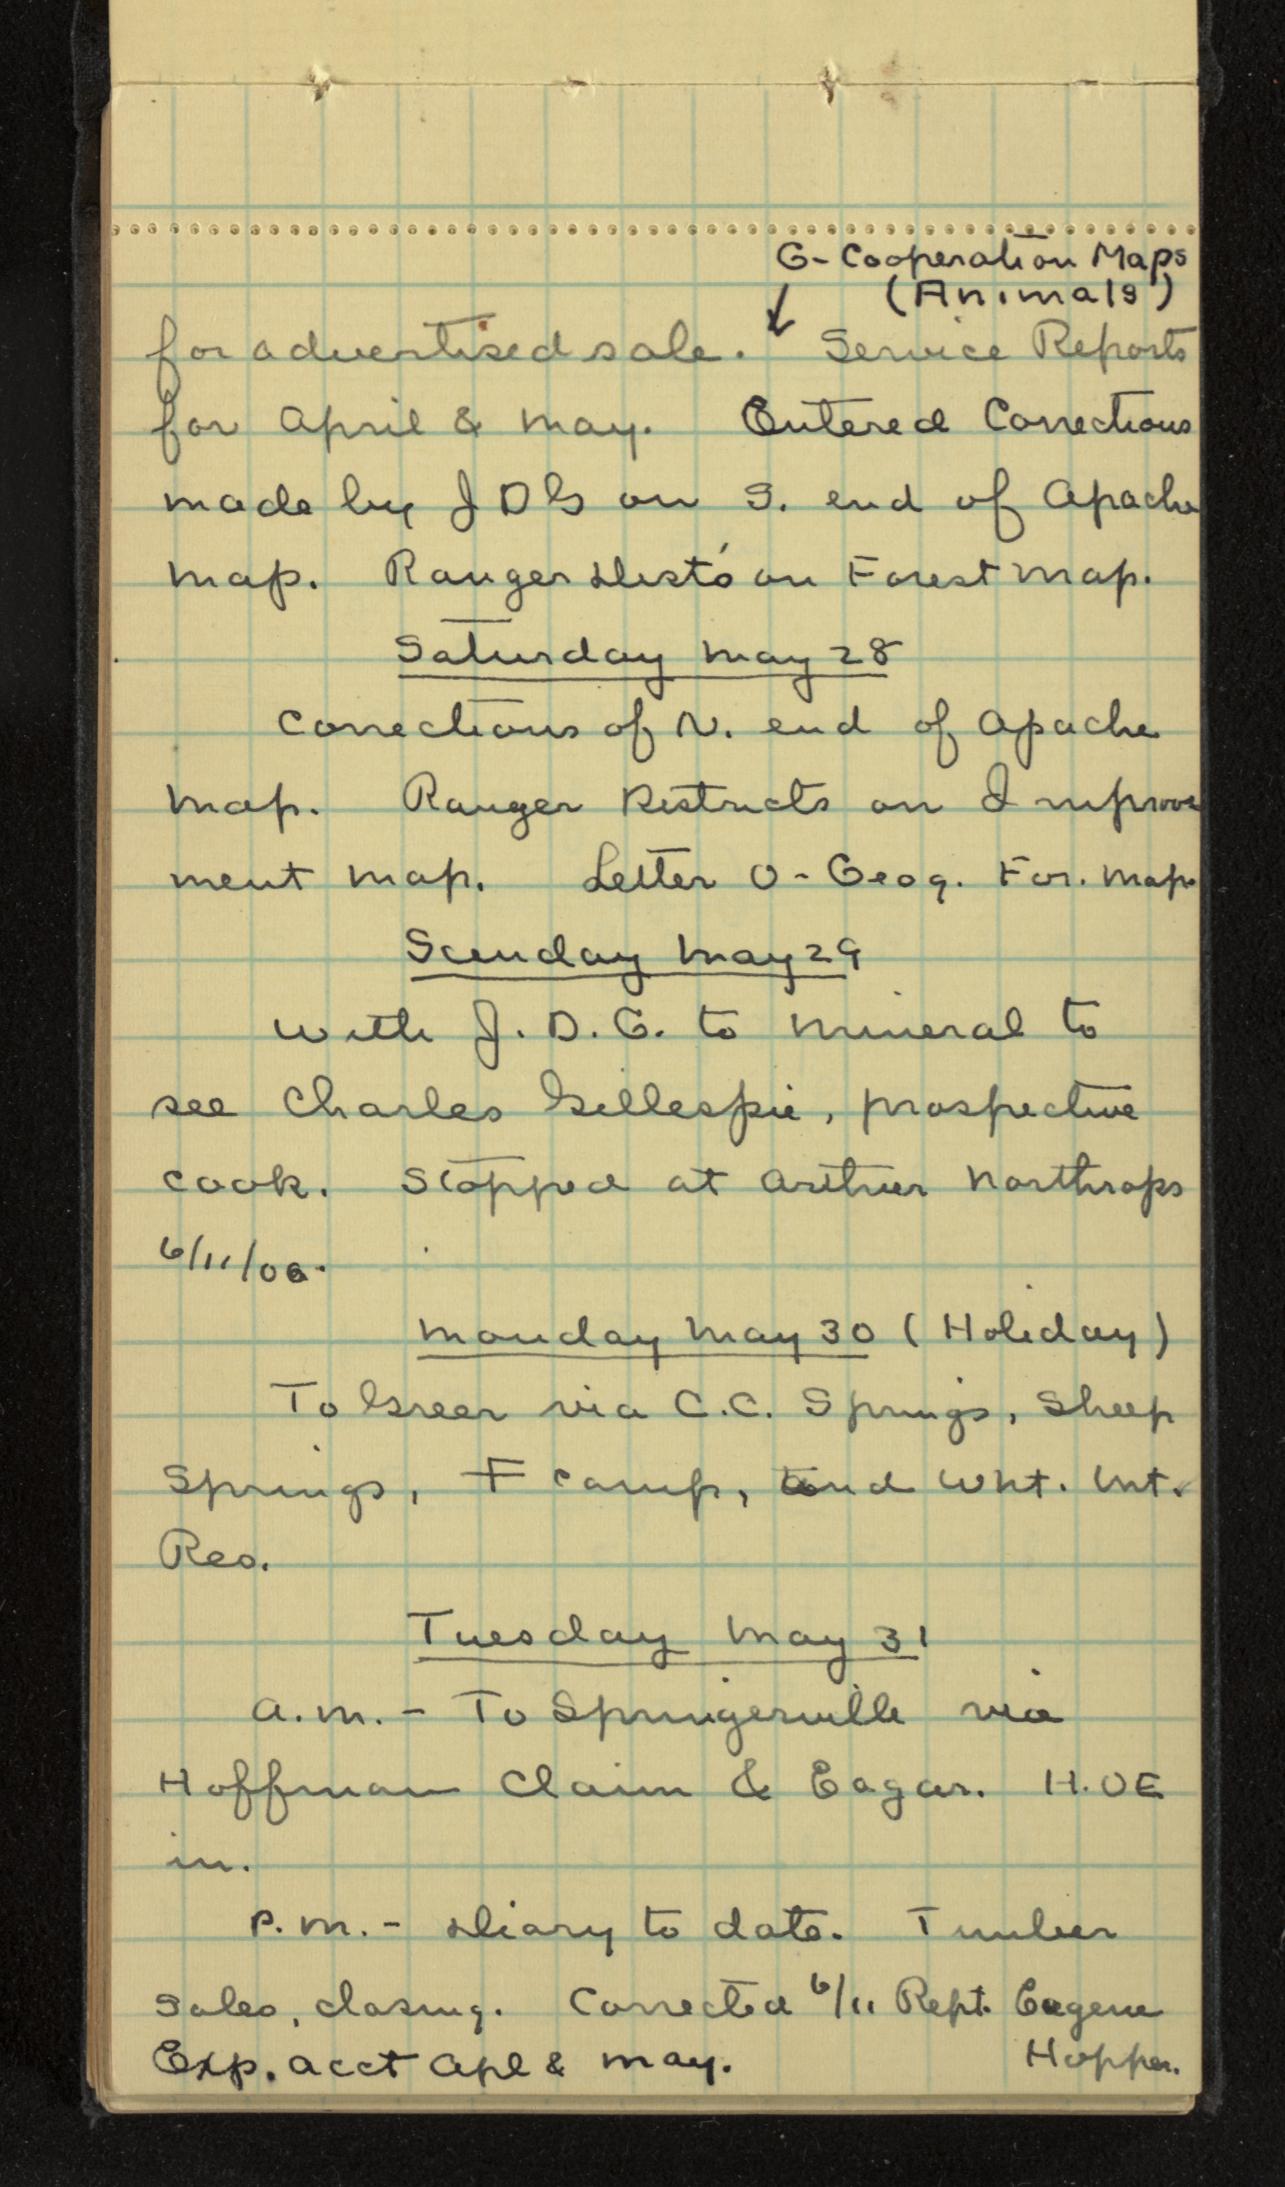 G- Cooperation Maps
(Animals)
↓
for advertised sale. Service Reports
for April & May. Entered Corrections
made by JDG on S. end of Apache
map. Ranger Dist's on Forest Map.
Saturday May 28
Corrections of N. end of Apache
Map. Ranger Districts on Improve
ment Map. Letter O- Geog. For. Map
Sunday May 29
With J.D.G. to Mineral to
see Charles Gillespie, prospective
cook. Stopped at Arthur Northrops
6/11/06.
Monday May 30 (Holiday)
To Greer via C.C. Springs, Sheep
Springs, F camp, and Wht. Mt.
Res.
Tuesday May 31
A.M. - To Springerville via
Hoffman Claim & Eagar. H.O.E
in.
P.M. - Diary to date. Timber
Sales, closing. Corrected 6/11 Rept. Eugene
Hopper.
Exp. acct Apl & May.